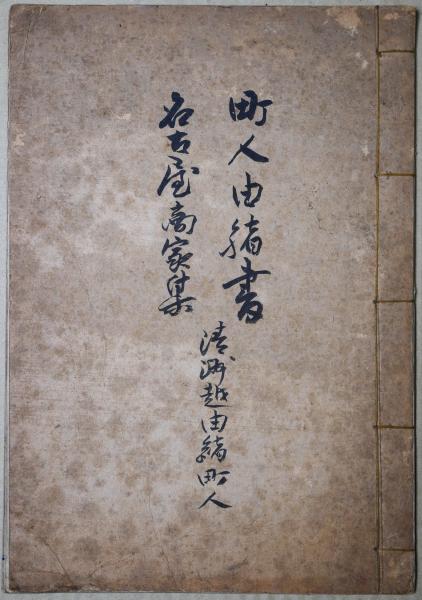 町人由緒書
名古屋商家集
清洲越由緒町人